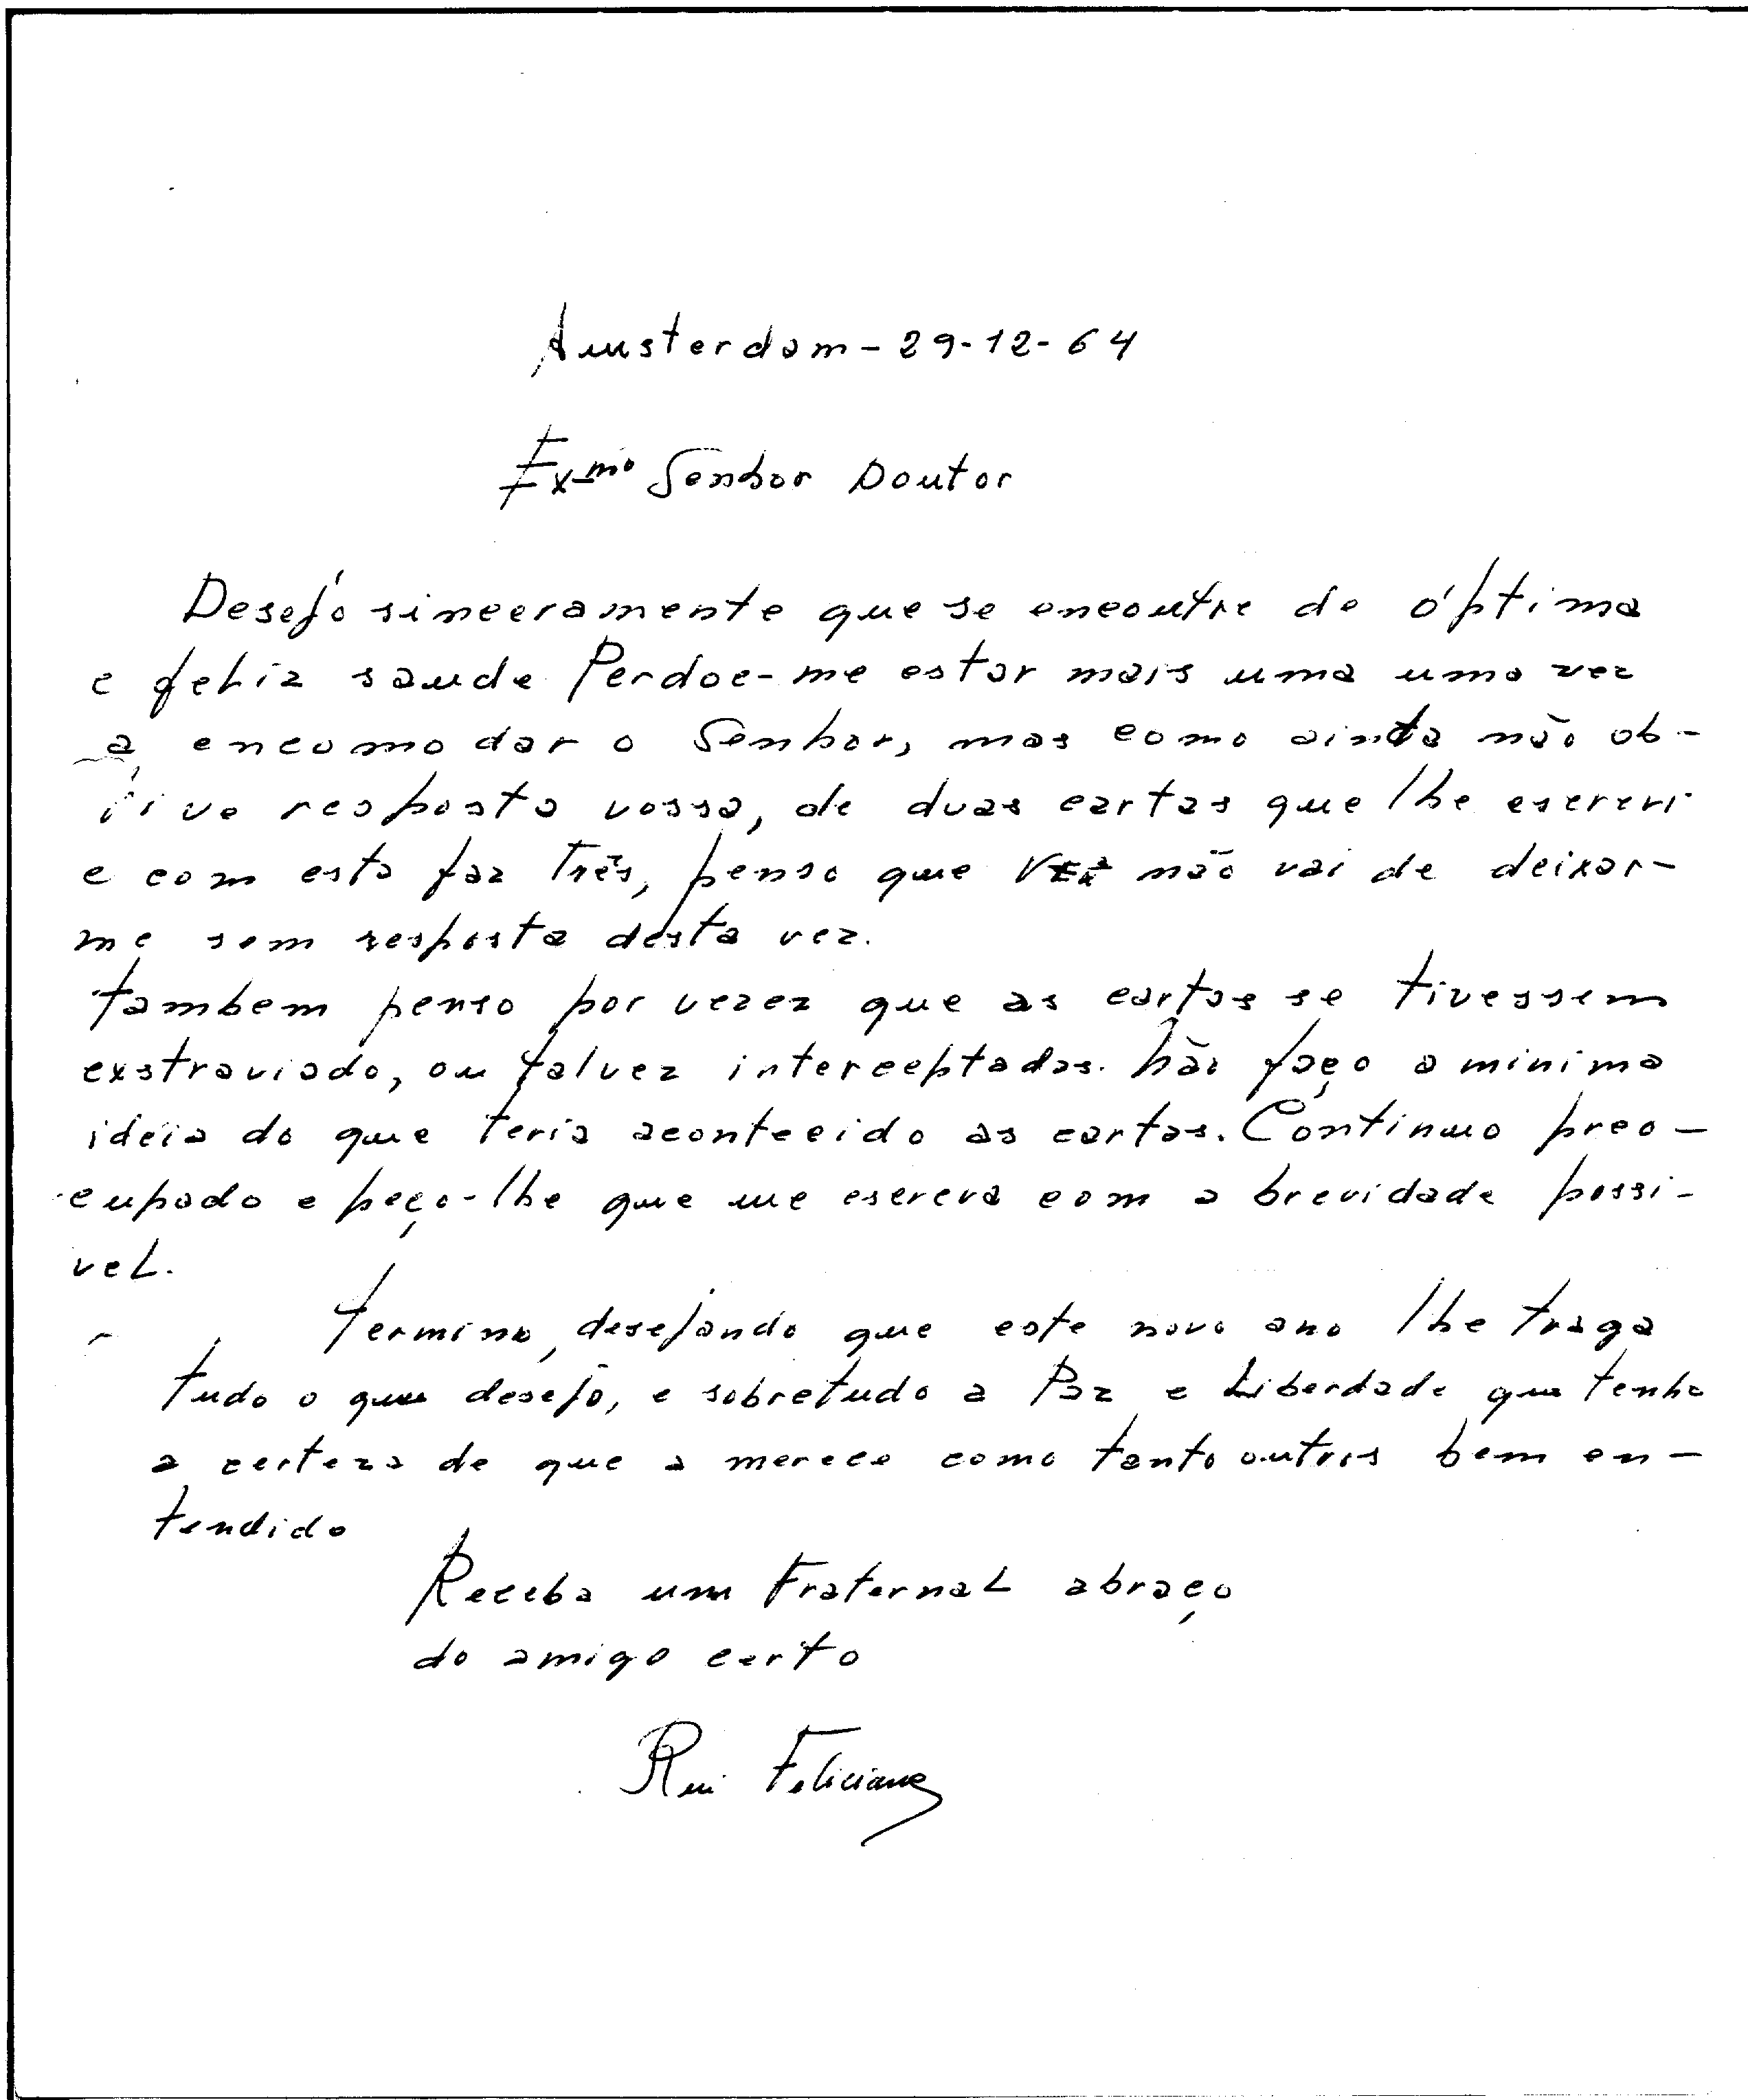 Amsterdam - 29-12-64
Exmo Senhor Doutor
Desejo sinceramente que se encontre de óptima
e feliz saude Perdoe-me estar mais uma uma vez
a encomodar o Senhor, mas como ainda não ob-
tive resposta vossa, de duas cartas que lhe escrevi
e com esta faz três, penso que não vai de deixar-
me sem resposta desta vez.
Tambem penso por vezez que as cartas se tivessem
exstraviado, ou talvez interceptadas. Não faço a minima
ideia do que teria acontecido as cartas. Continuo preo-
cupado e peço-lhe que me escreva com a brevidade possi-
vel.
Termino, desejando que este novo ano lhe traga
tudo o que desejo, e sobretudo a Paz e Liberdade que tenho
a certeza de que a merece como tanto outros bem en-
tendido
Receba um Fraternal abraço
do amigo certo
Rui Feliciano